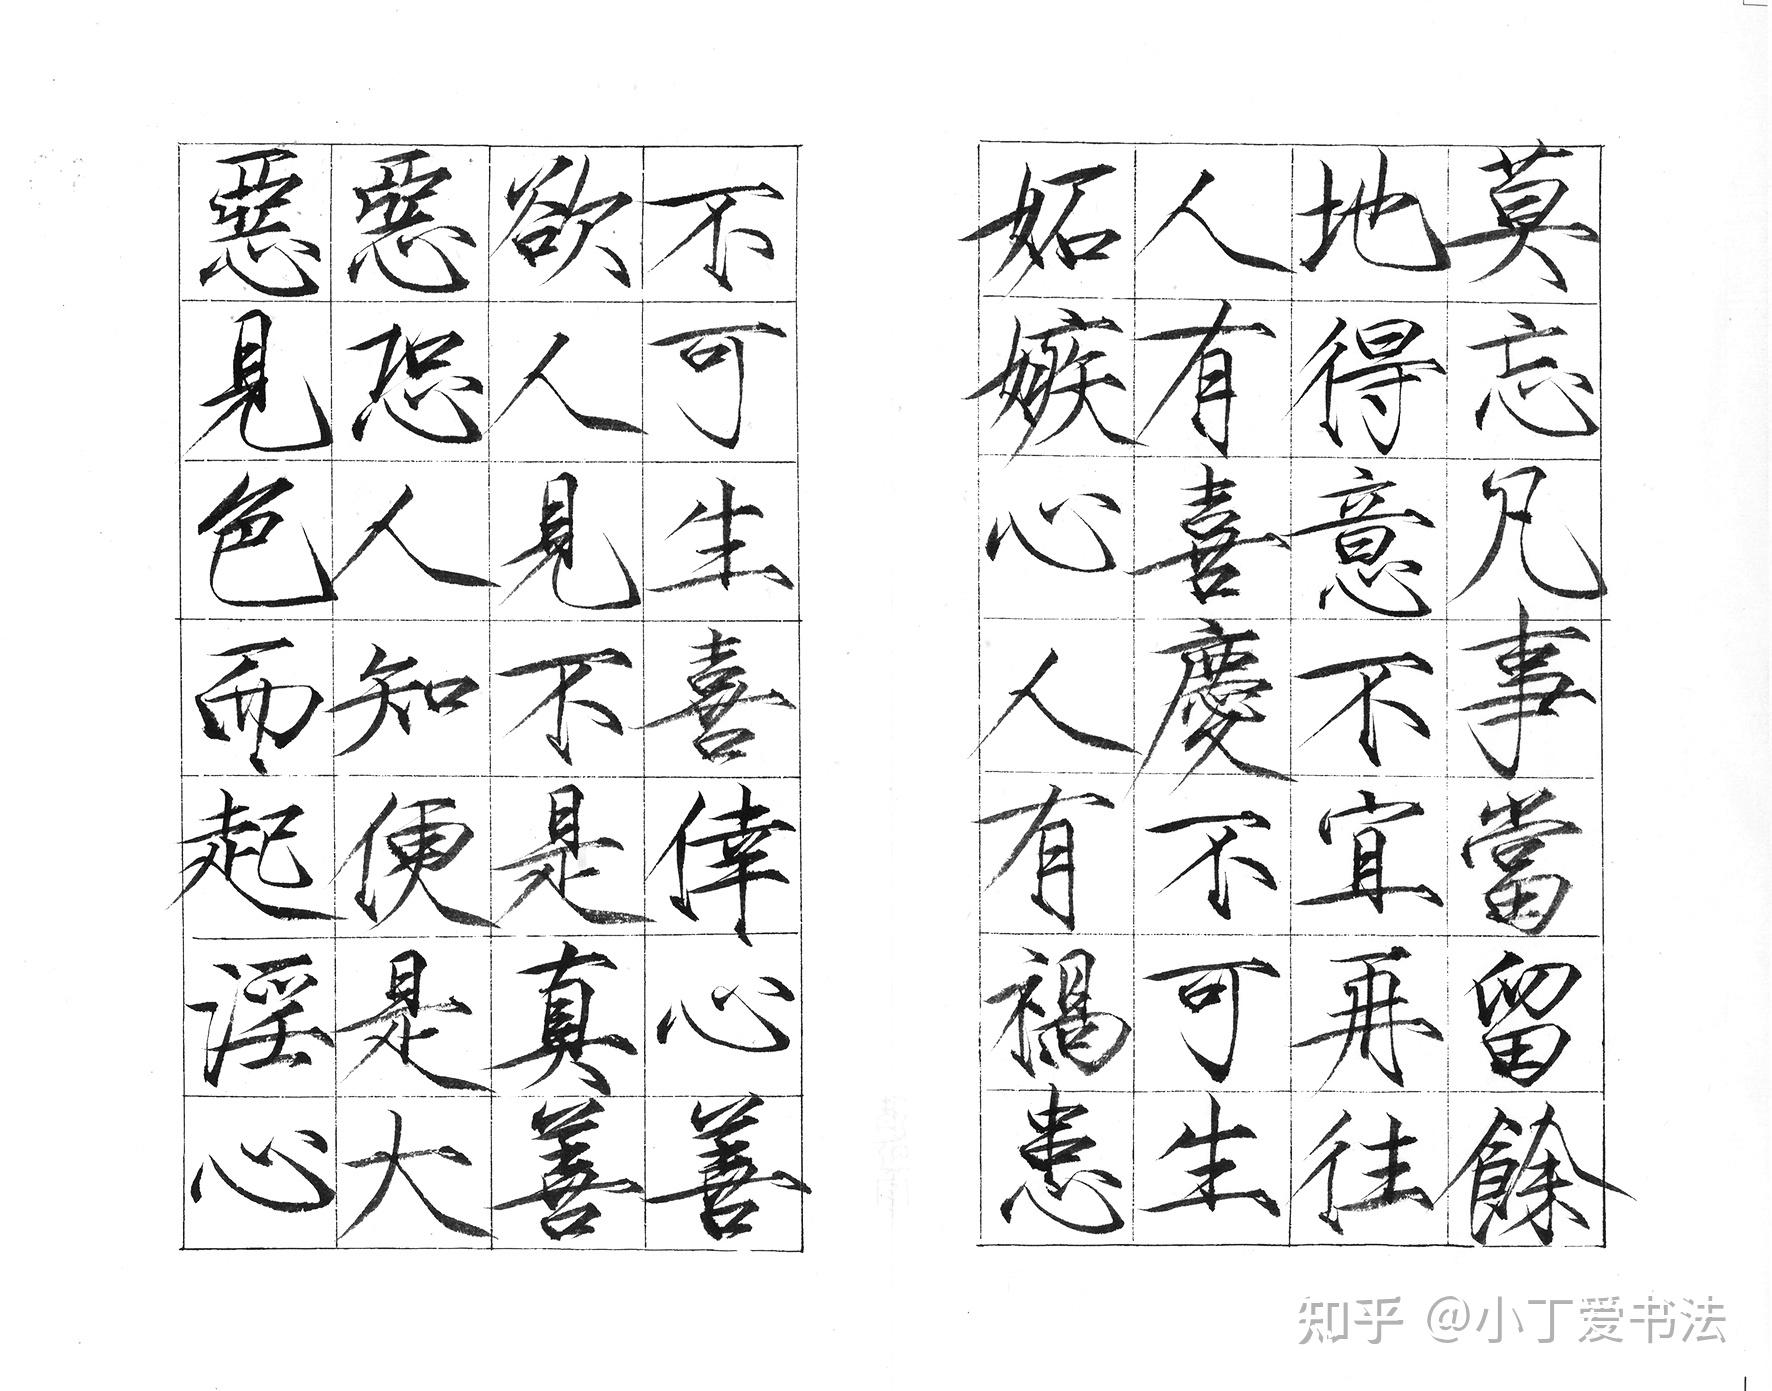 莫忘凡事當留餘
地得意不宜再往
人有喜慶不可生
妬嫉心人有禍患
不可生喜倖心善
欲人見不是真善
惡恐人知便是大
惡見色而起淫心
知乎 @小丁爱书法